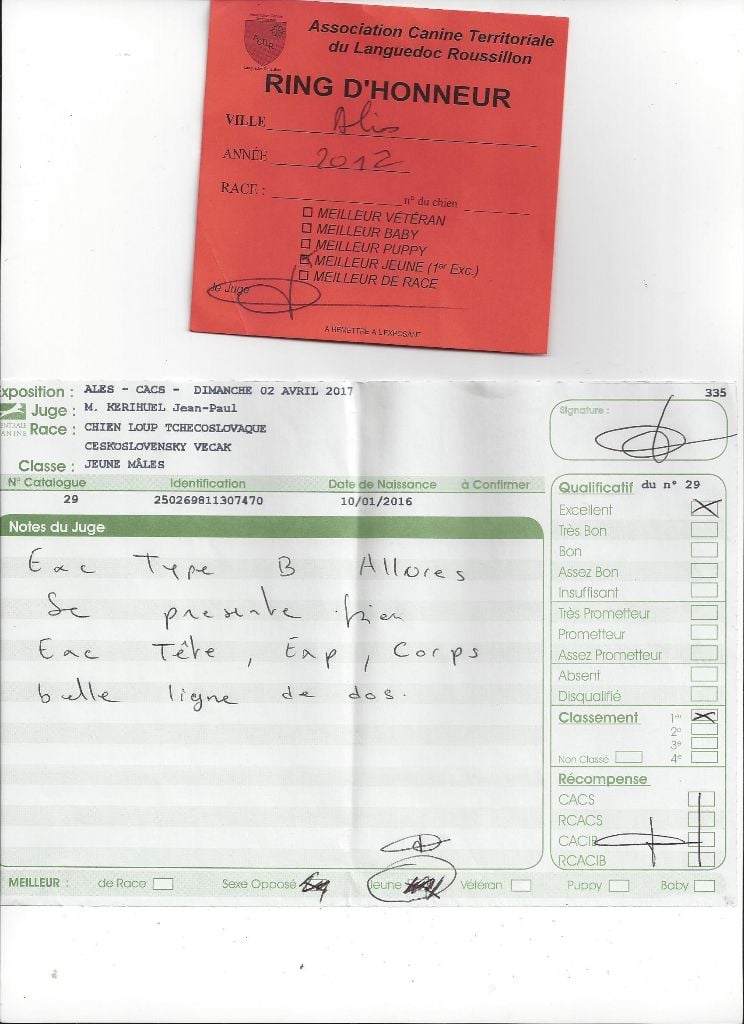 Association Canine Territoriale
du Languedoc Roussillon
RING D'HONNEUR
VILLE Alès
ANNÉE 2012
RACE : n° du chien
MEILLEUR VÉTÉRAN
MEILLEUR BABY
MEILLEUR PUPPY
MEILLEUR JEUNE (1er Exc.)
MEILLEUR DE RACE
le Juge
A REMETTRE A L'EXPOSANT
Exposition : ALES - CACS - DIMANCHE 02 AVRIL 2017
335
Juge : M. KERIHUEL Jean-Paul
Race : CHIEN LOUP TCHECOSLOVAQUE
CESKOSLOVENSKY VECAK
Classe : JEUNE MÂLES
Signature :
N° Catalogue Identification Date de Naissance à Confirmer
29 250269811307470 10/01/2016
Notes du Juge
Exc Type B Allures
Se presente bien
Exc Tête, Exp, Corps
belle ligne de dos.
Qualificatif du n° 29
Excellent
Très Bon
Bon
Assez Bon
Insuffisant
Très Prometteur
Prometteur
Assez Prometteur
Absent
Disqualifié
Classement 1er
2e
3e
Non Classé 4e
Récompense
CACS
RCACS
CACIB
RCACIB
MEILLEUR : de Race Sexe Opposé Jeune Vétéran Puppy Baby